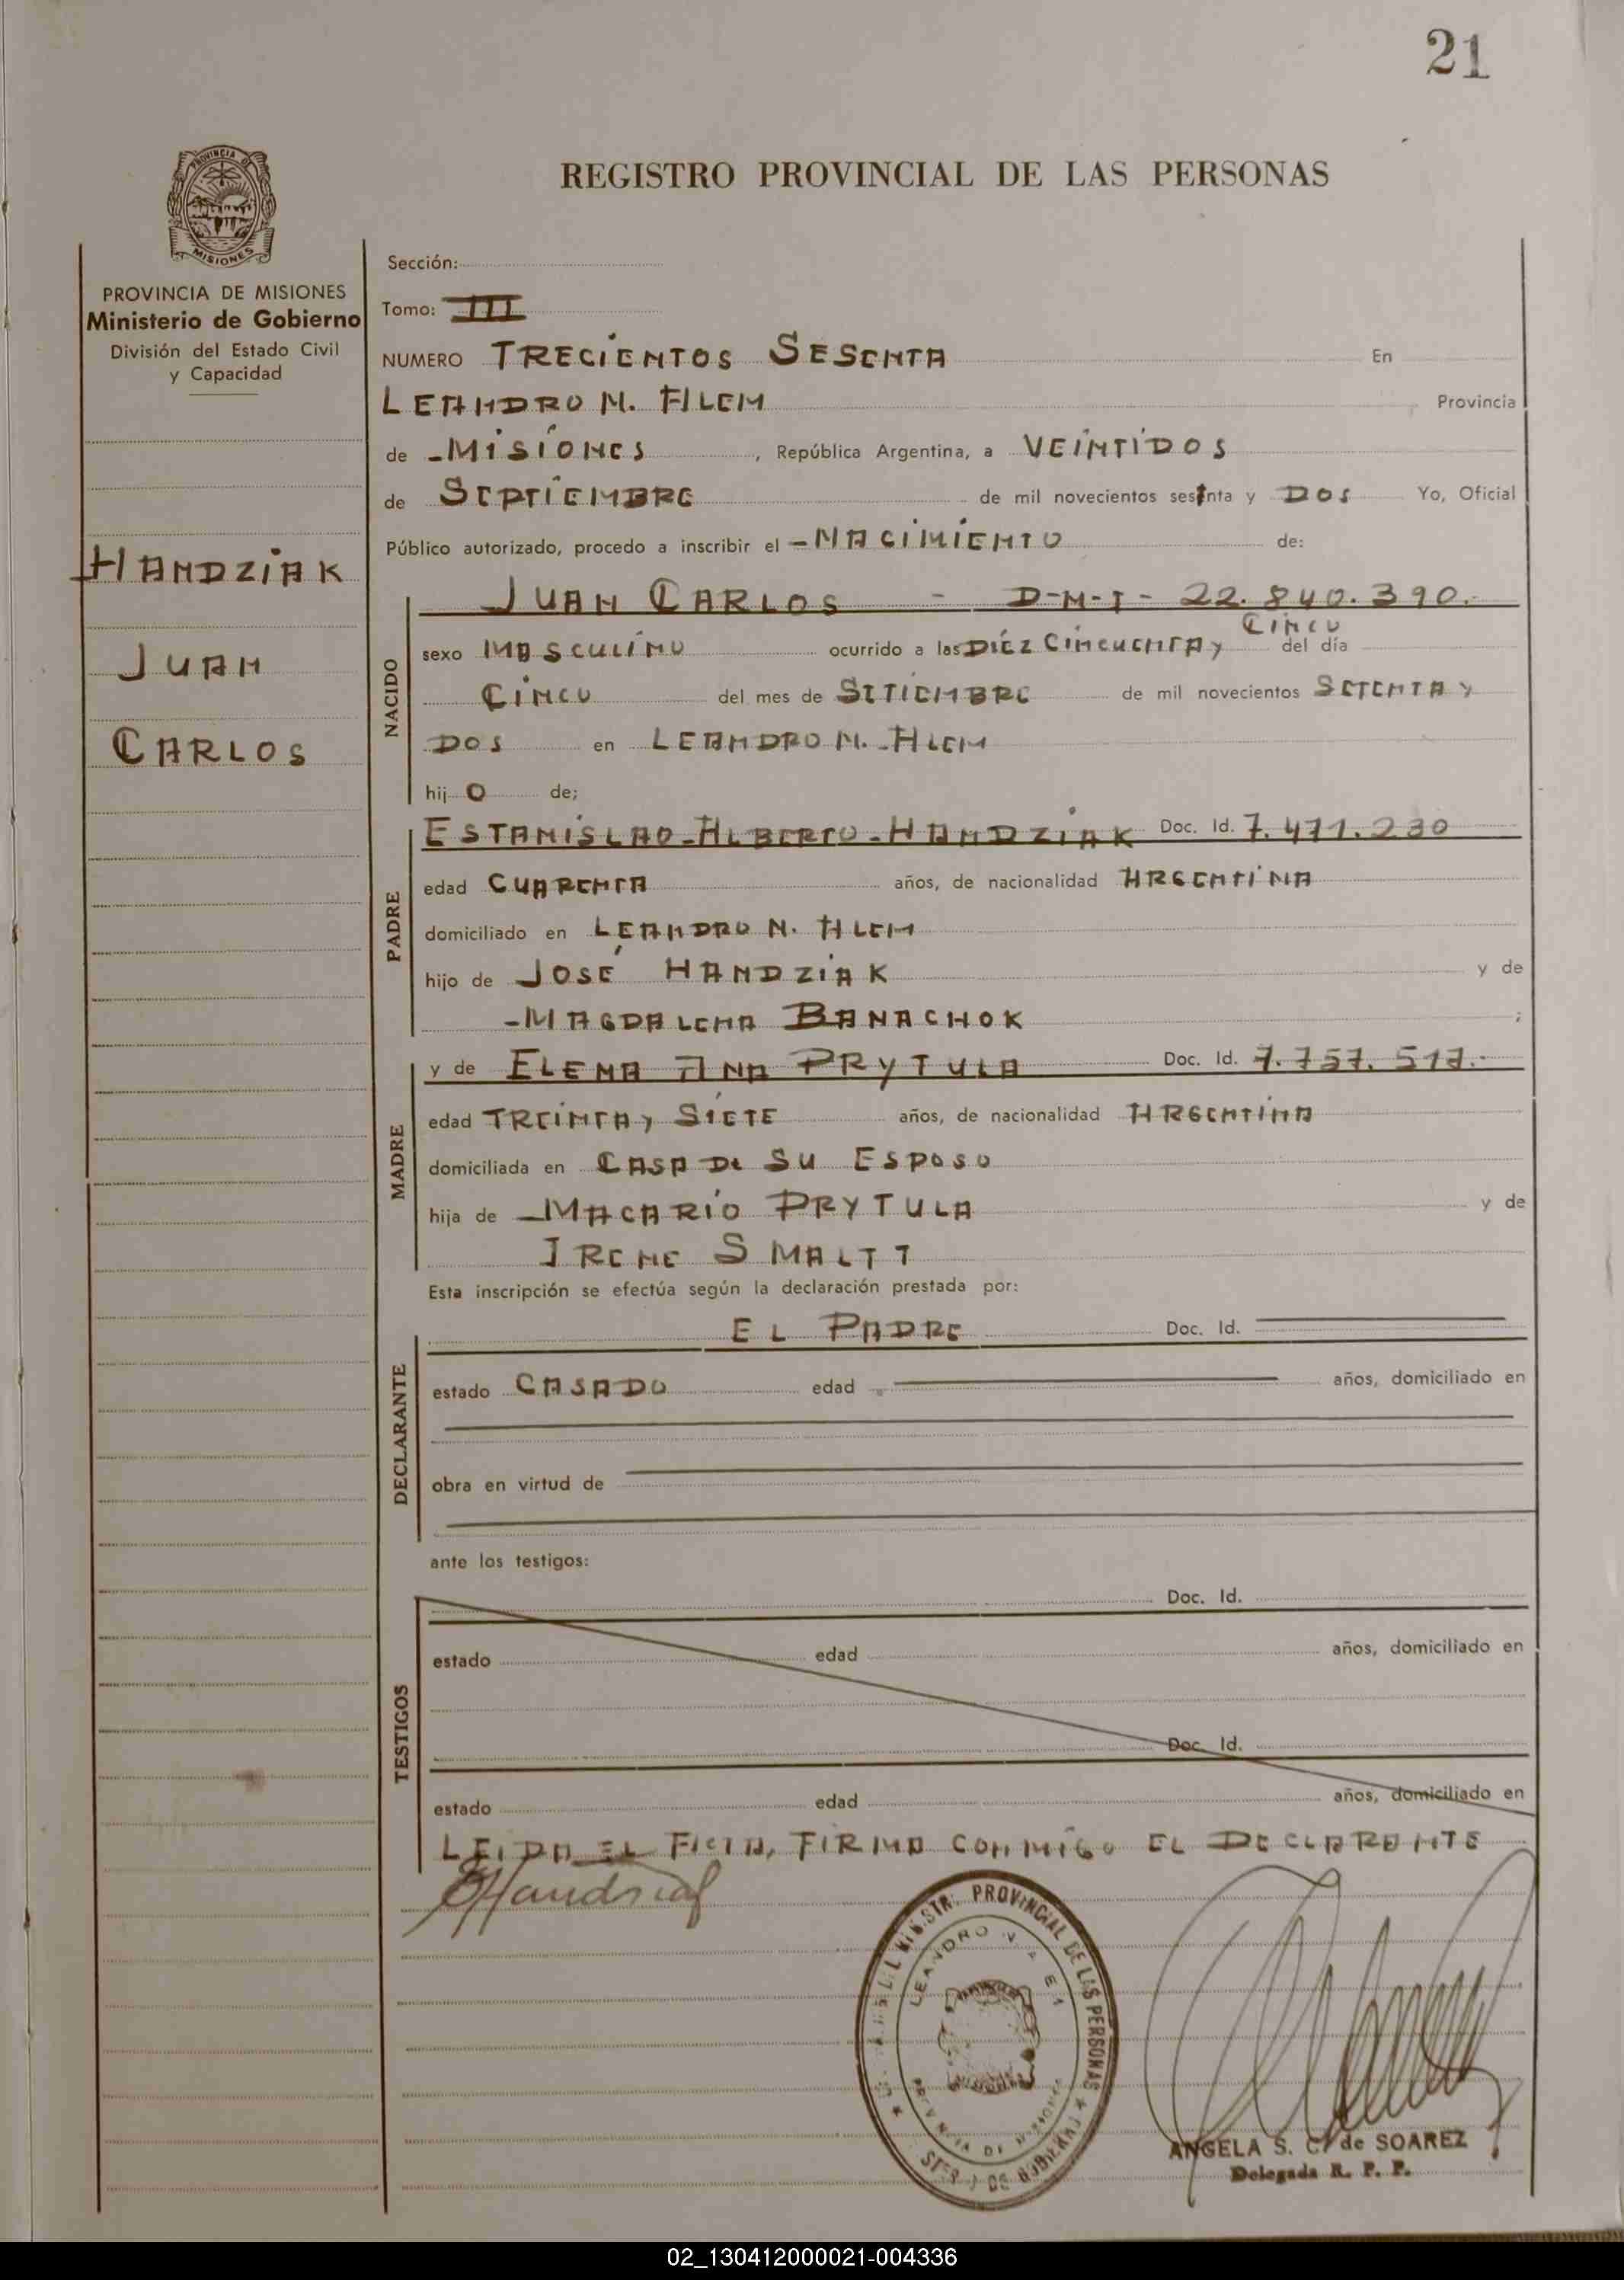 21
PROVINCIA DE
MISIONES
REGISTRO PROVINCIAL DE LAS PERSONAS
PROVINCIA DE MISIONES
Ministerio de Gobierno
División del Estado Civil
y Capacidad
HANDZIAK
JUAN
CARLOS
Sección:
Tomo: III
NUMERO TRECIENTOS SESENTA En
LEANDRO N. ALEM Provincia
de MISIONES, República Argentina, a VEINTIDOS
de SEPTIEMBRE de mil novecientos sesenta y DOS Yo, Oficial
Público autorizado, procedo a inscribir el NACIMIENTO de:
NACIDO
JUAN CARLOS - D-N-I- 22.840.390.-
CINCO
sexo MASCULINO ocurrido a las DIEZ CINCUENTA y del día
CINCO del mes de SETIEMBRE de mil novecientos SETENTA Y
DOS en LEANDRO N. ALEM
hij O de;
PADRE
ESTANISLAO ALBERTO HANDZIAK Doc. Id. 7.471.230
edad CUARENTA años, de nacionalidad ARGENTINA
domiciliado en LEANDRO N. ALEM
hijo de JOSÉ HANDZIAK y de
MAGDALENA BANACHOK ;
MADRE
y de ELENA ANA PRYTULA Doc. Id. 7.757.517.-
edad TREINTA y SIETE años, de nacionalidad ARGENTINA
domiciliada en CASA DE SU ESPOSO
hija de MACARIO PRYTULA y de
IRENE SMALTT
Esta inscripción se efectúa según la declaración prestada por:
DECLARANTE
EL PADRE Doc. Id.
estado CASADO edad años, domiciliado en
obra en virtud de
ante los testigos:
TESTIGOS
Doc. Id.
estado edad años, domiciliado en
Doc. Id.
estado edad años, domiciliado en
LEIDA EL ACTA, FIRMA CONMIGO EL DECLARANTE
EHandziak
PROVINCIAL DE LAS PERSONAS
LEANDRO N.
ANGELA S. C. de SOAREZ
Delegada R. P. P.
02_130412000021-004336